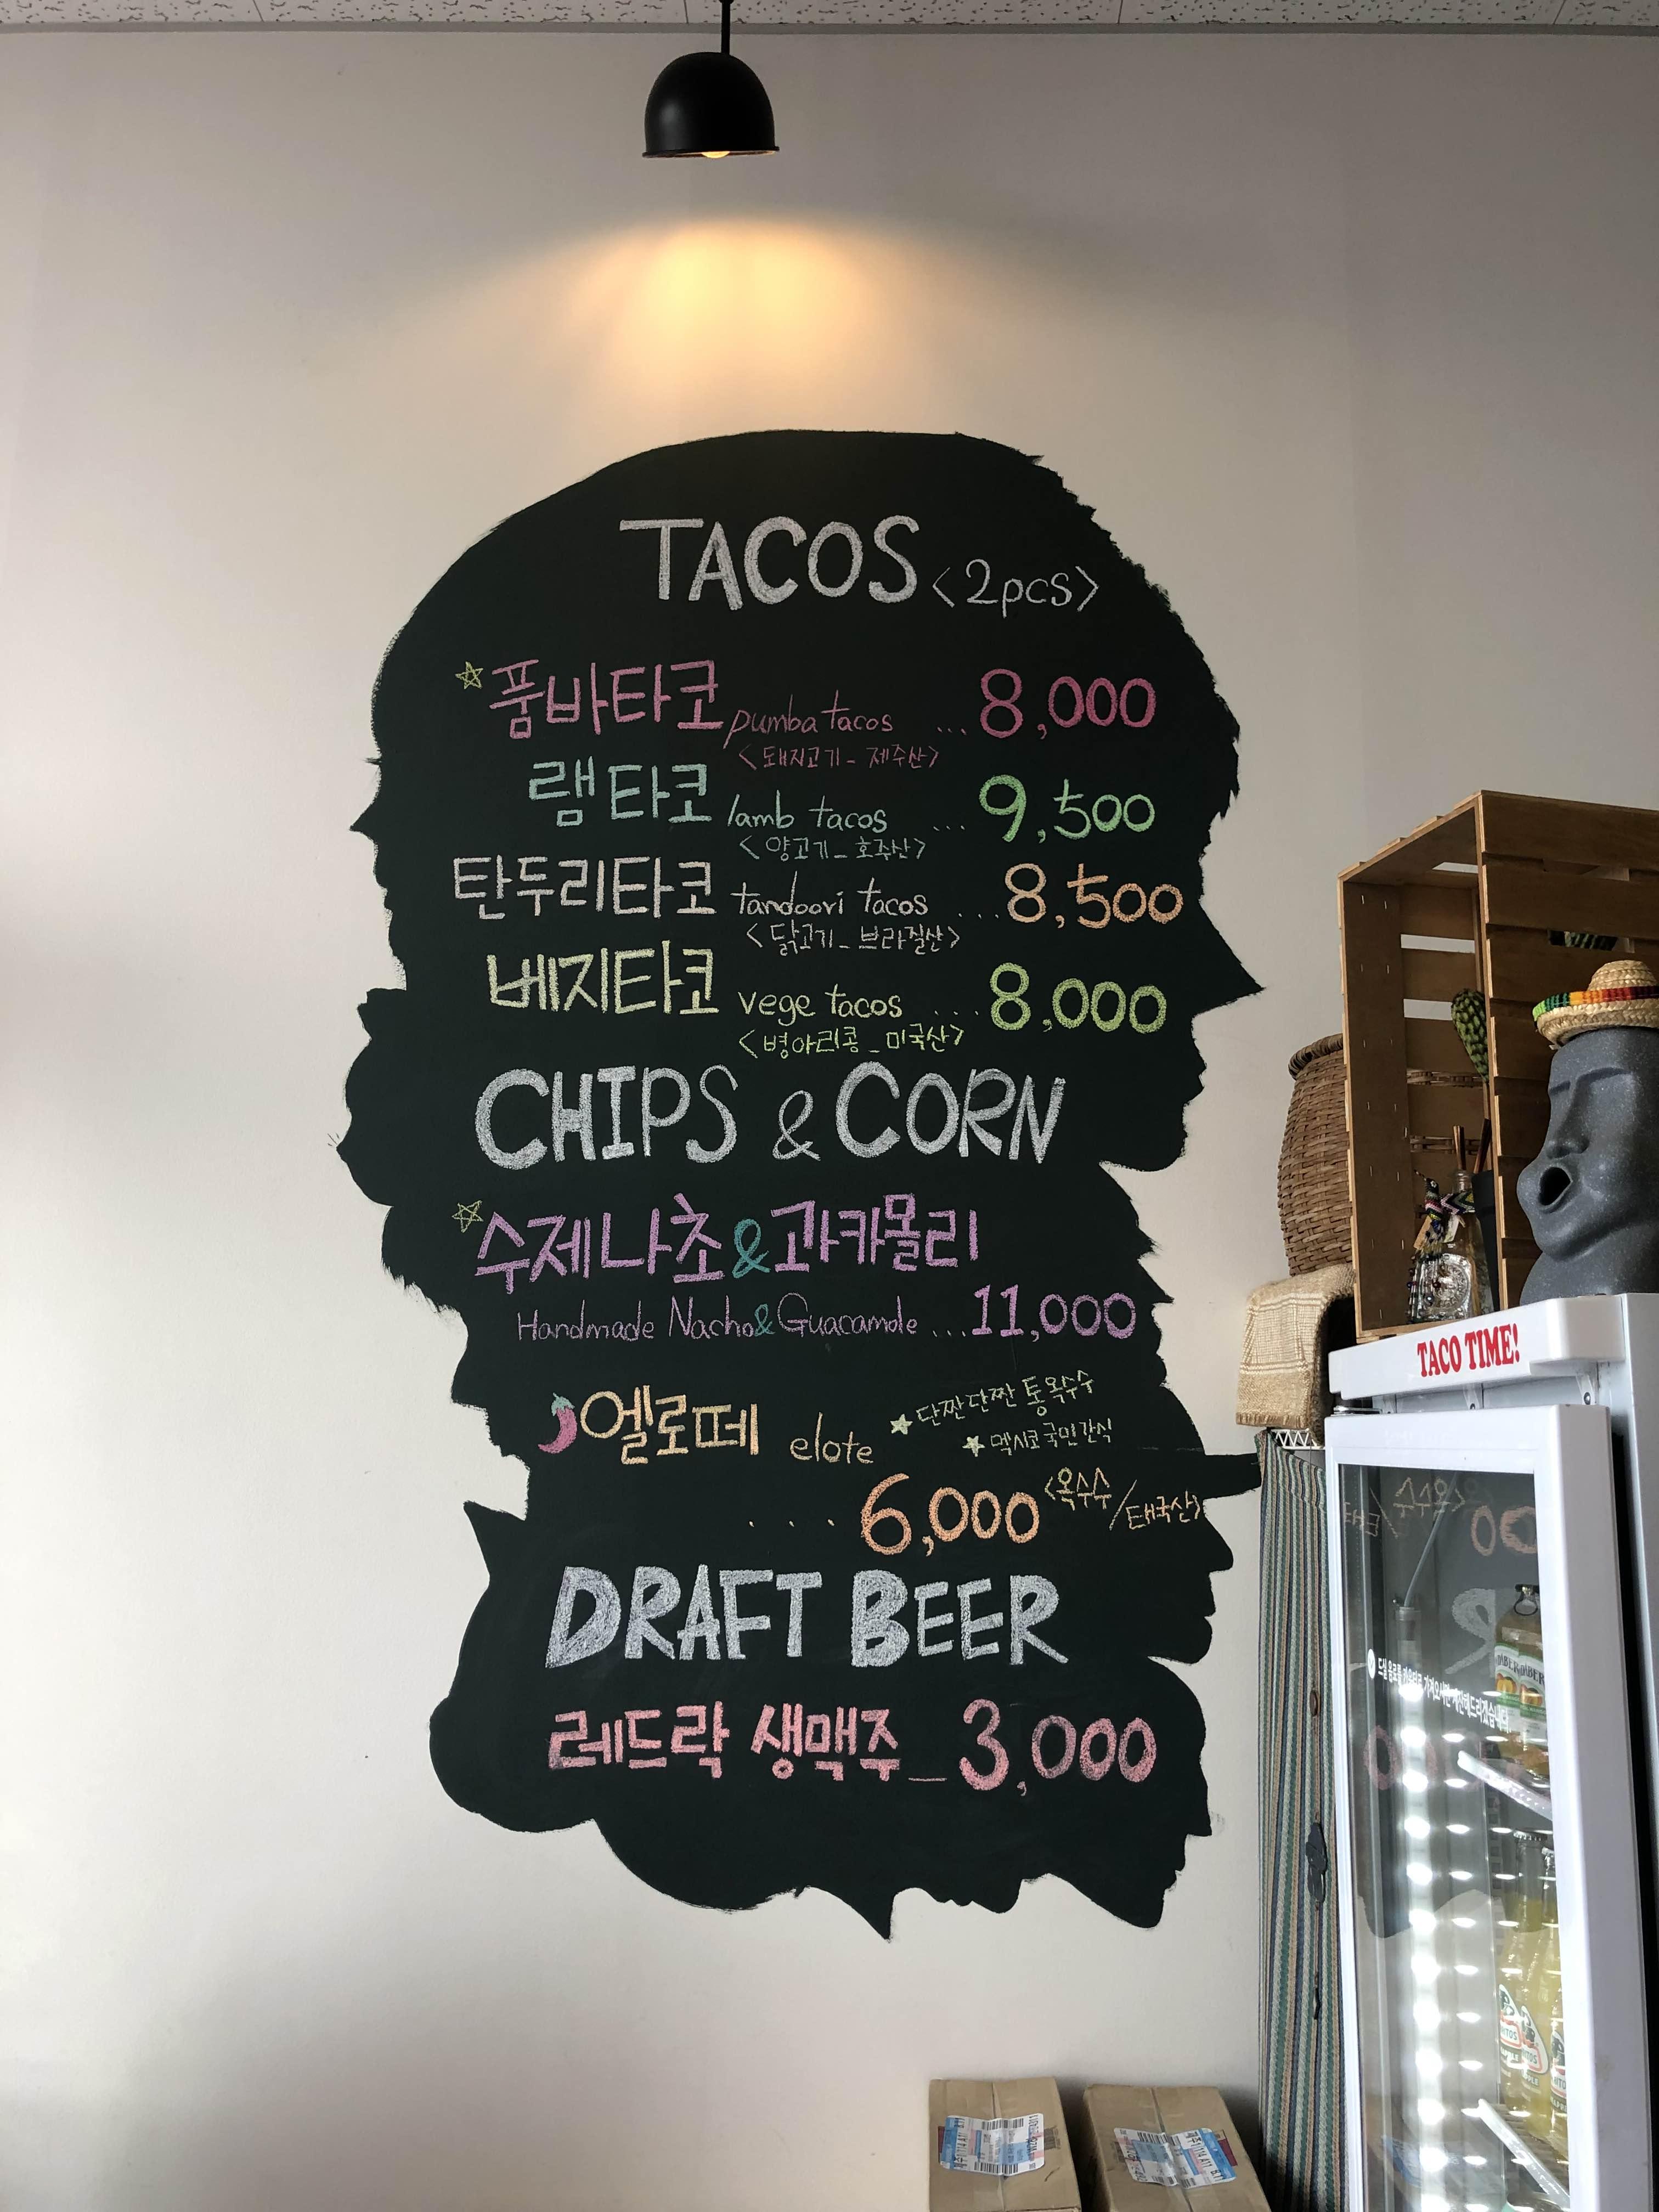 TACOS <2pcs>
☆품바타코 pumba tacos ... 8,000
<돼지고기_제주산>
램타코 lamb tacos ... 9,500
<양고기_호주산>
탄두리타코 tandoori tacos ... 8,500
<닭고기_브라질산>
베지타코 vege tacos ... 8,000
<병아리콩_미국산>
CHIPS & CORN
☆수제나초&과카몰리
Handmade Nacho&Guacamole ... 11,000
엘로떼 elote ★단짠단짠 통옥수수
★멕시코 국민간식
... 6,000 <옥수수/태국산>
DRAFT BEER
레드락 생맥주_3,000
TACO TIME!